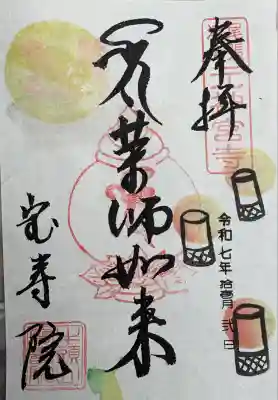 奉拝
令和七年拾壱月弐日
薬師如来
宝寿院